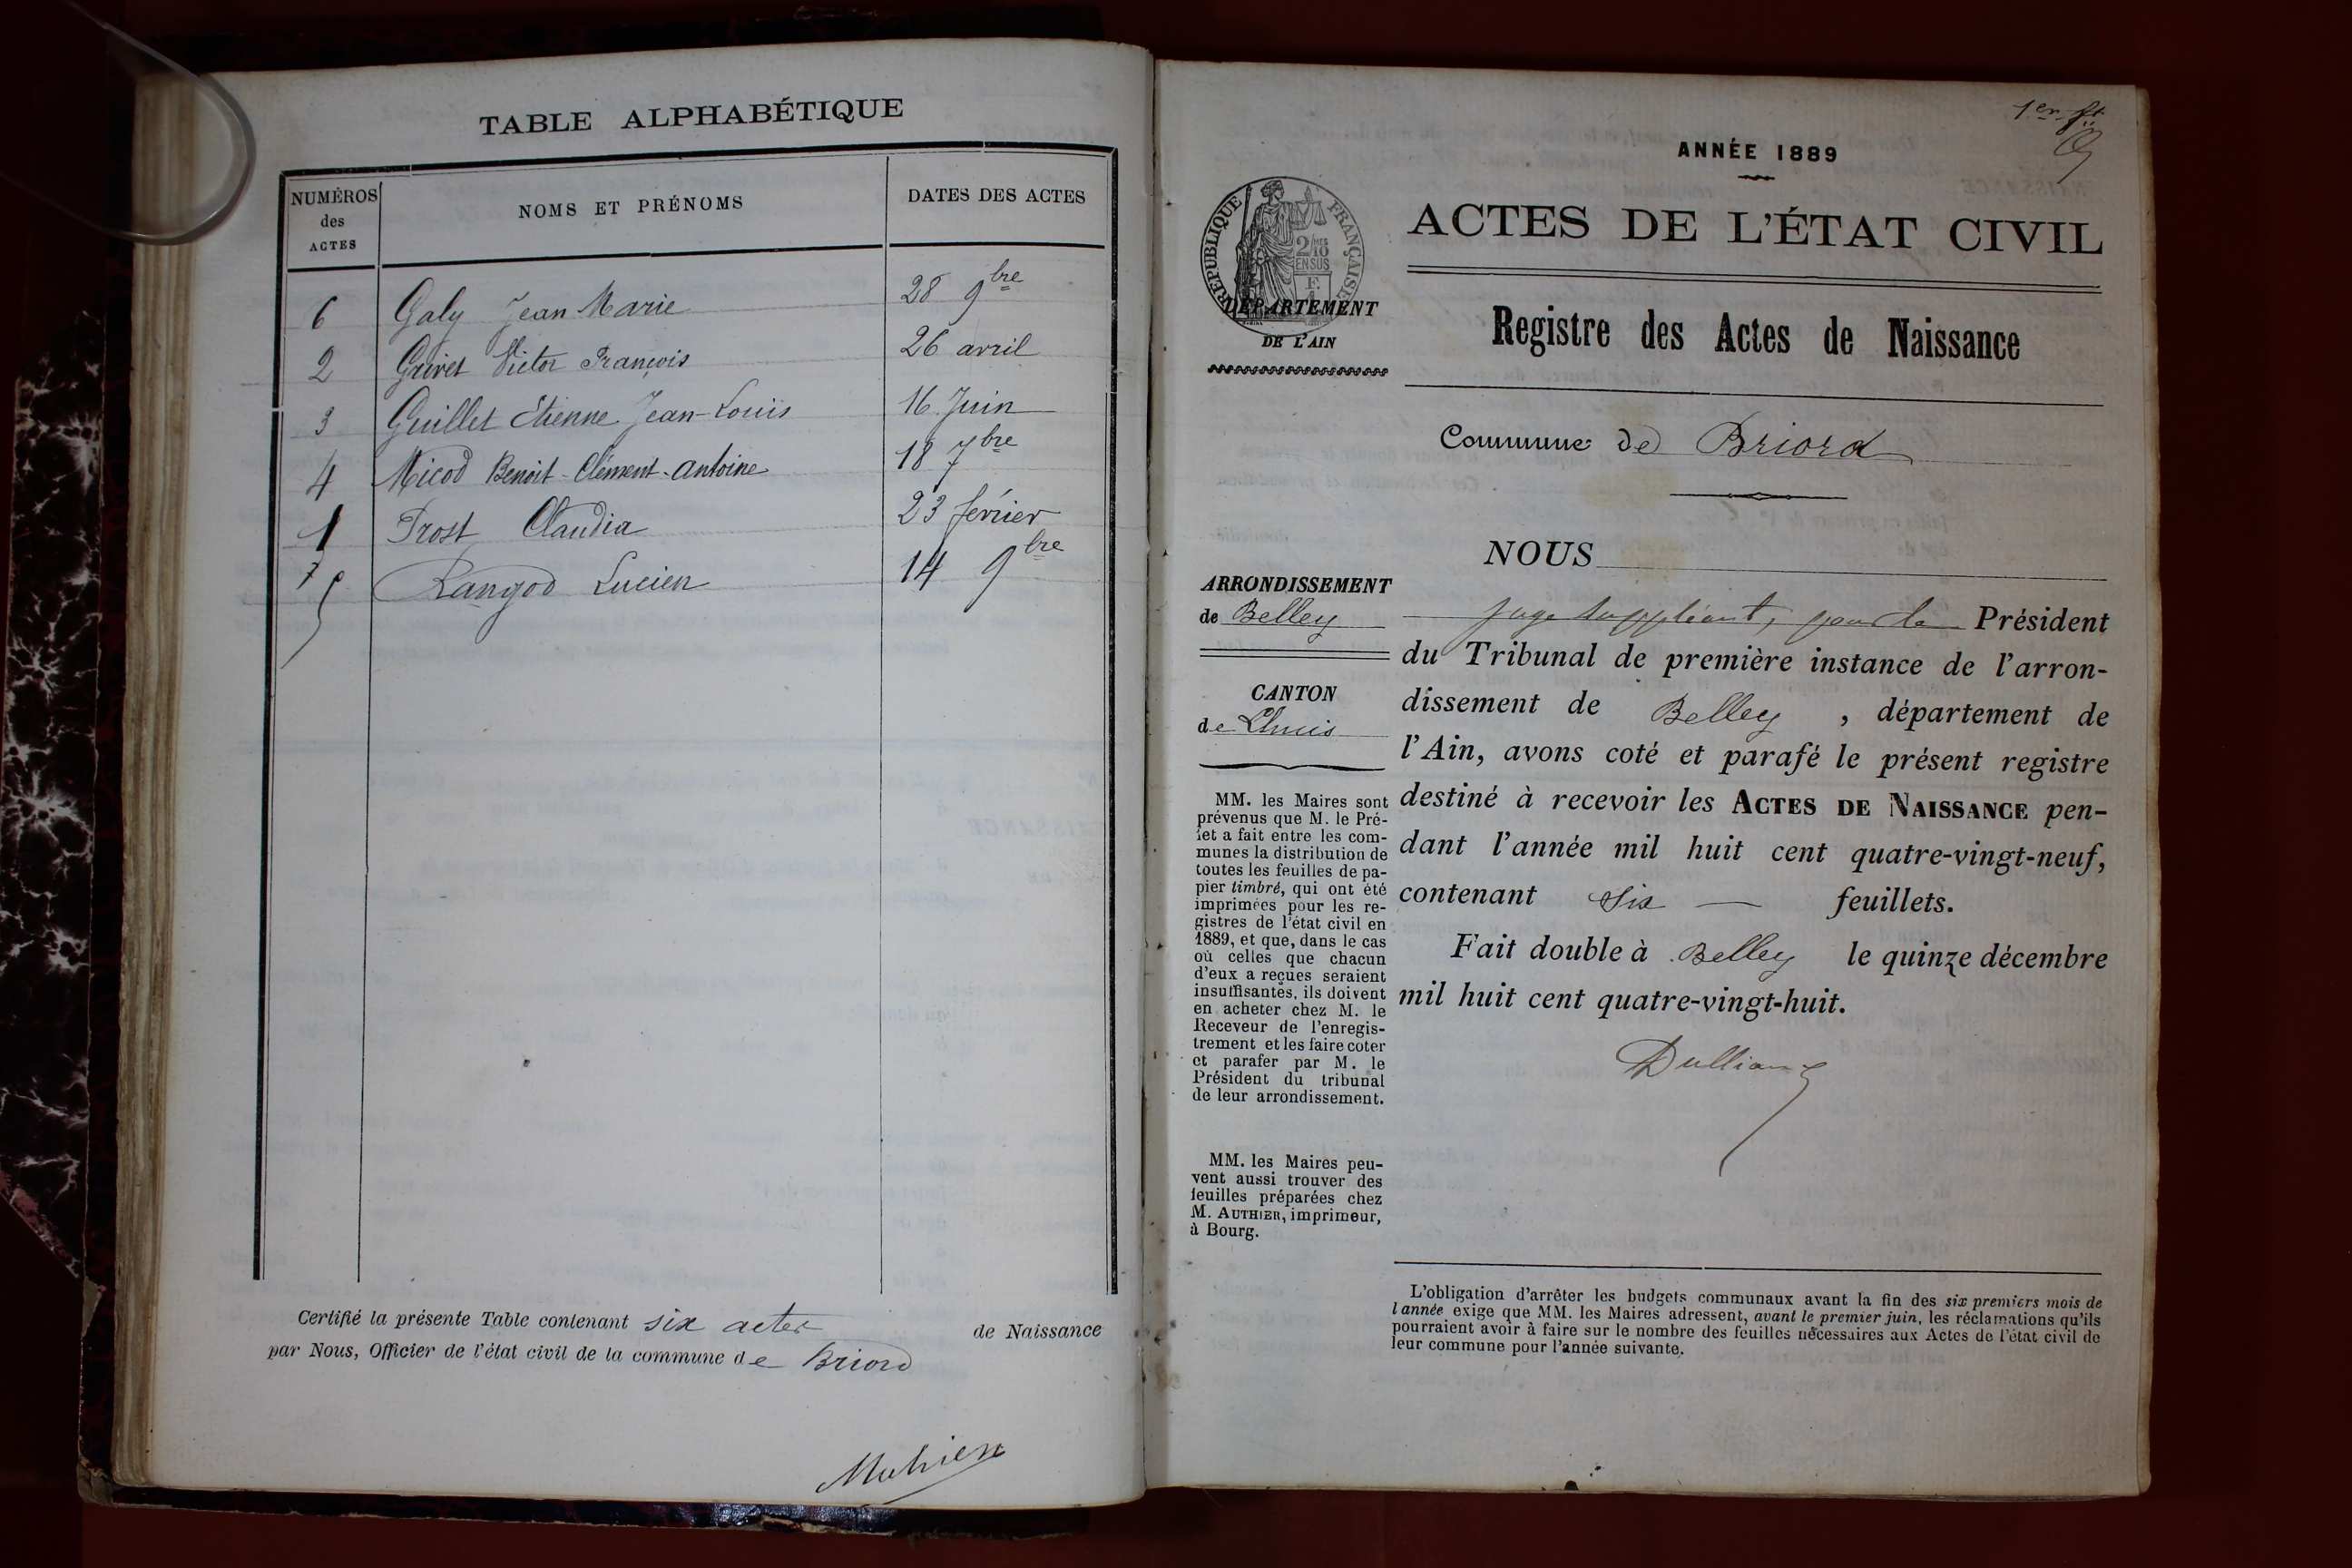 TABLE ALPHABÉTIQUE
NUMÉROS
des
ACTES
NOMS ET PRÉNOMS
DATES DES ACTES
6 Galy Jean Marie 28 9bre
2 Grivet Victor François 26 avril
3 Guillet Etienne Jean-Louis 16 Juin
4 Micod Benoit-Clément-Antoine 18 7bre
1 Prost Claudia 23 février
5 Rangod Lucien 14 9bre
Certifié la présente Table contenant six actes de Naissance
par Nous, Officier de l'état civil de la commune de Briord
Muhien
1er ft
ANNÉE 1889
ACTES DE L'ÉTAT CIVIL
RÉPUBLIQUE FRANÇAISE
2/10MES
EN SUS
DÉPARTEMENT
DE L'AIN
Registre des Actes de Naissance
Commune de Briord
ARRONDISSEMENT
de Belley
CANTON
de Lhuis
MM. les Maires sont
prévenus que M. le Pré-
fet a fait entre les com-
munes la distribution de
toutes les feuilles de pa-
pier timbré, qui ont été
imprimées pour les re-
gistres de l'état civil en
1889, et que, dans le cas
où celles que chacun
d'eux a reçues seraient
insuffisantes, ils doivent
en acheter chez M. le
Receveur de l'enregis-
trement et les faire coter
et parafer par M. le
Président du tribunal
de leur arrondissement.
MM. les Maires peu-
vent aussi trouver des
feuilles préparées chez
M. AUTHIER, imprimeur,
à Bourg.
NOUS
juge suppléant, pour le Président
du Tribunal de première instance de l'arron-
dissement de Belley, département de
l'Ain, avons coté et parafé le présent registre
destiné à recevoir les ACTES DE NAISSANCE pen-
dant l'année mil huit cent quatre-vingt-neuf,
contenant six — feuillets.
Fait double à Belley le quinze décembre
mil huit cent quatre-vingt-huit.
L'obligation d'arrêter les budgets communaux avant la fin des six premiers mois de
l'année exige que MM. les Maires adressent, avant le premier juin, les réclamations qu'ils
pourraient avoir à faire sur le nombre des feuilles nécessaires aux Actes de l'état civil de
leur commune pour l'année suivante.